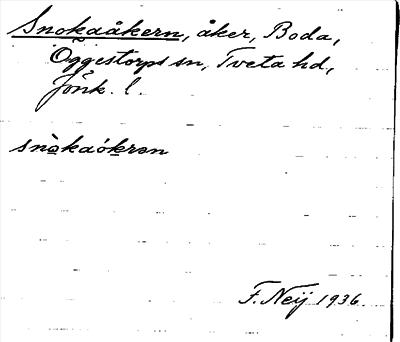 Snokaåkern, åker, Boda,
Öggestorps sn, Tveta hd,
Jönk. l.
snòkaókrən
F. Neij 1936.